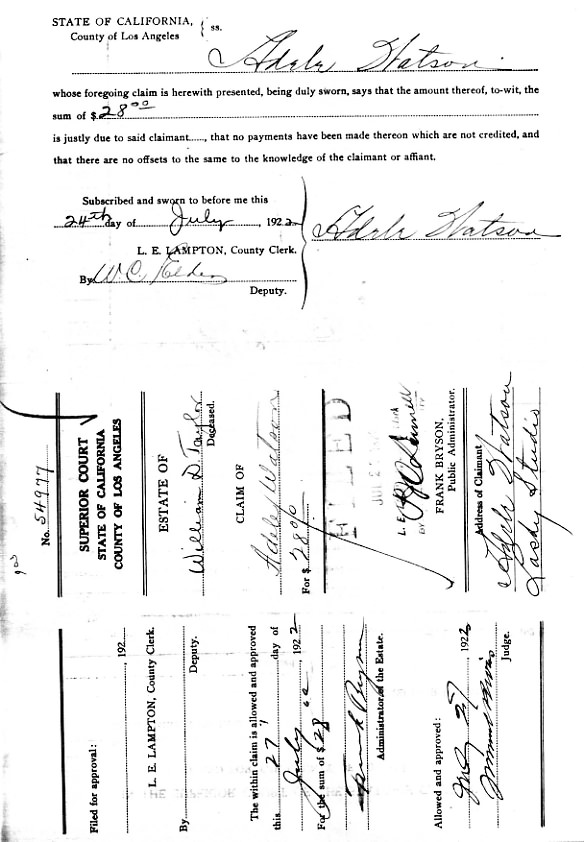 STATE OF CALIFORNIA,
County of Los Angeles
ss.
Adele Watson
whose foregoing claim is herewith presented, being duly sworn, says that the amount thereof, to-wit, the
sum of $ 28 00
is justly due to said claimant......, that no payments have been made thereon which are not credited, and
that there are no offsets to the same to the knowledge of the claimant or affiant.
Subscribed and sworn to before me this
24th day of July, 1922
Adele Watson
L. E. LAMPTON, County Clerk.
By W. C.
Deputy.
No. 54977
SUPERIOR COURT
STATE OF CALIFORNIA
COUNTY OF LOS ANGELES
ESTATE OF
William D Taylor
Deceased.
CLAIM OF
Adele Watson
For $ 28 00
FILED
L. E.
BY
FRANK BRYSON,
Public Administrator.
Address of Claimant
Adele Watson
Lasky Studio
Filed for approval:
, 192
L. E. LAMPTON, County Clerk.
By
Deputy.
The within claim is allowed and approved
this 27 day of
July, 1922
For the sum of $ 28 00
Frank Bryson
Administrator of the Estate.
Allowed and approved:
July 27, 1922
Judge.